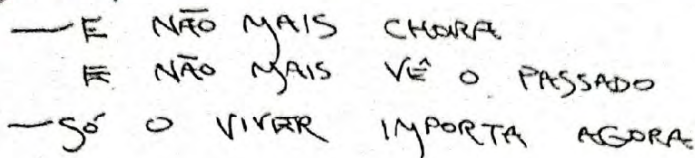 — E NÃO MAIS CHORA
E NÃO MAIS VÊ O PASSADO
— SÓ O VIVER IMPORTA AGORA